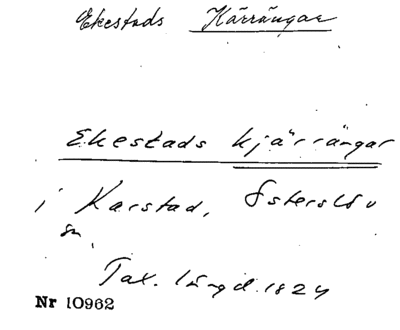 Ekestads Kärrängar
Ekestads kjärrängar
i Karstad, Österslöv
sn.
Tax. längd 1824
Nr 10962